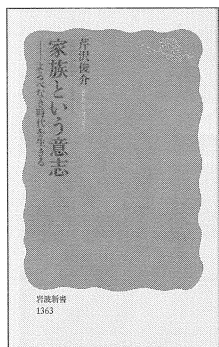 芹沢俊介
家族という意志
――よるべなき時代を生きる
岩波新書
1363